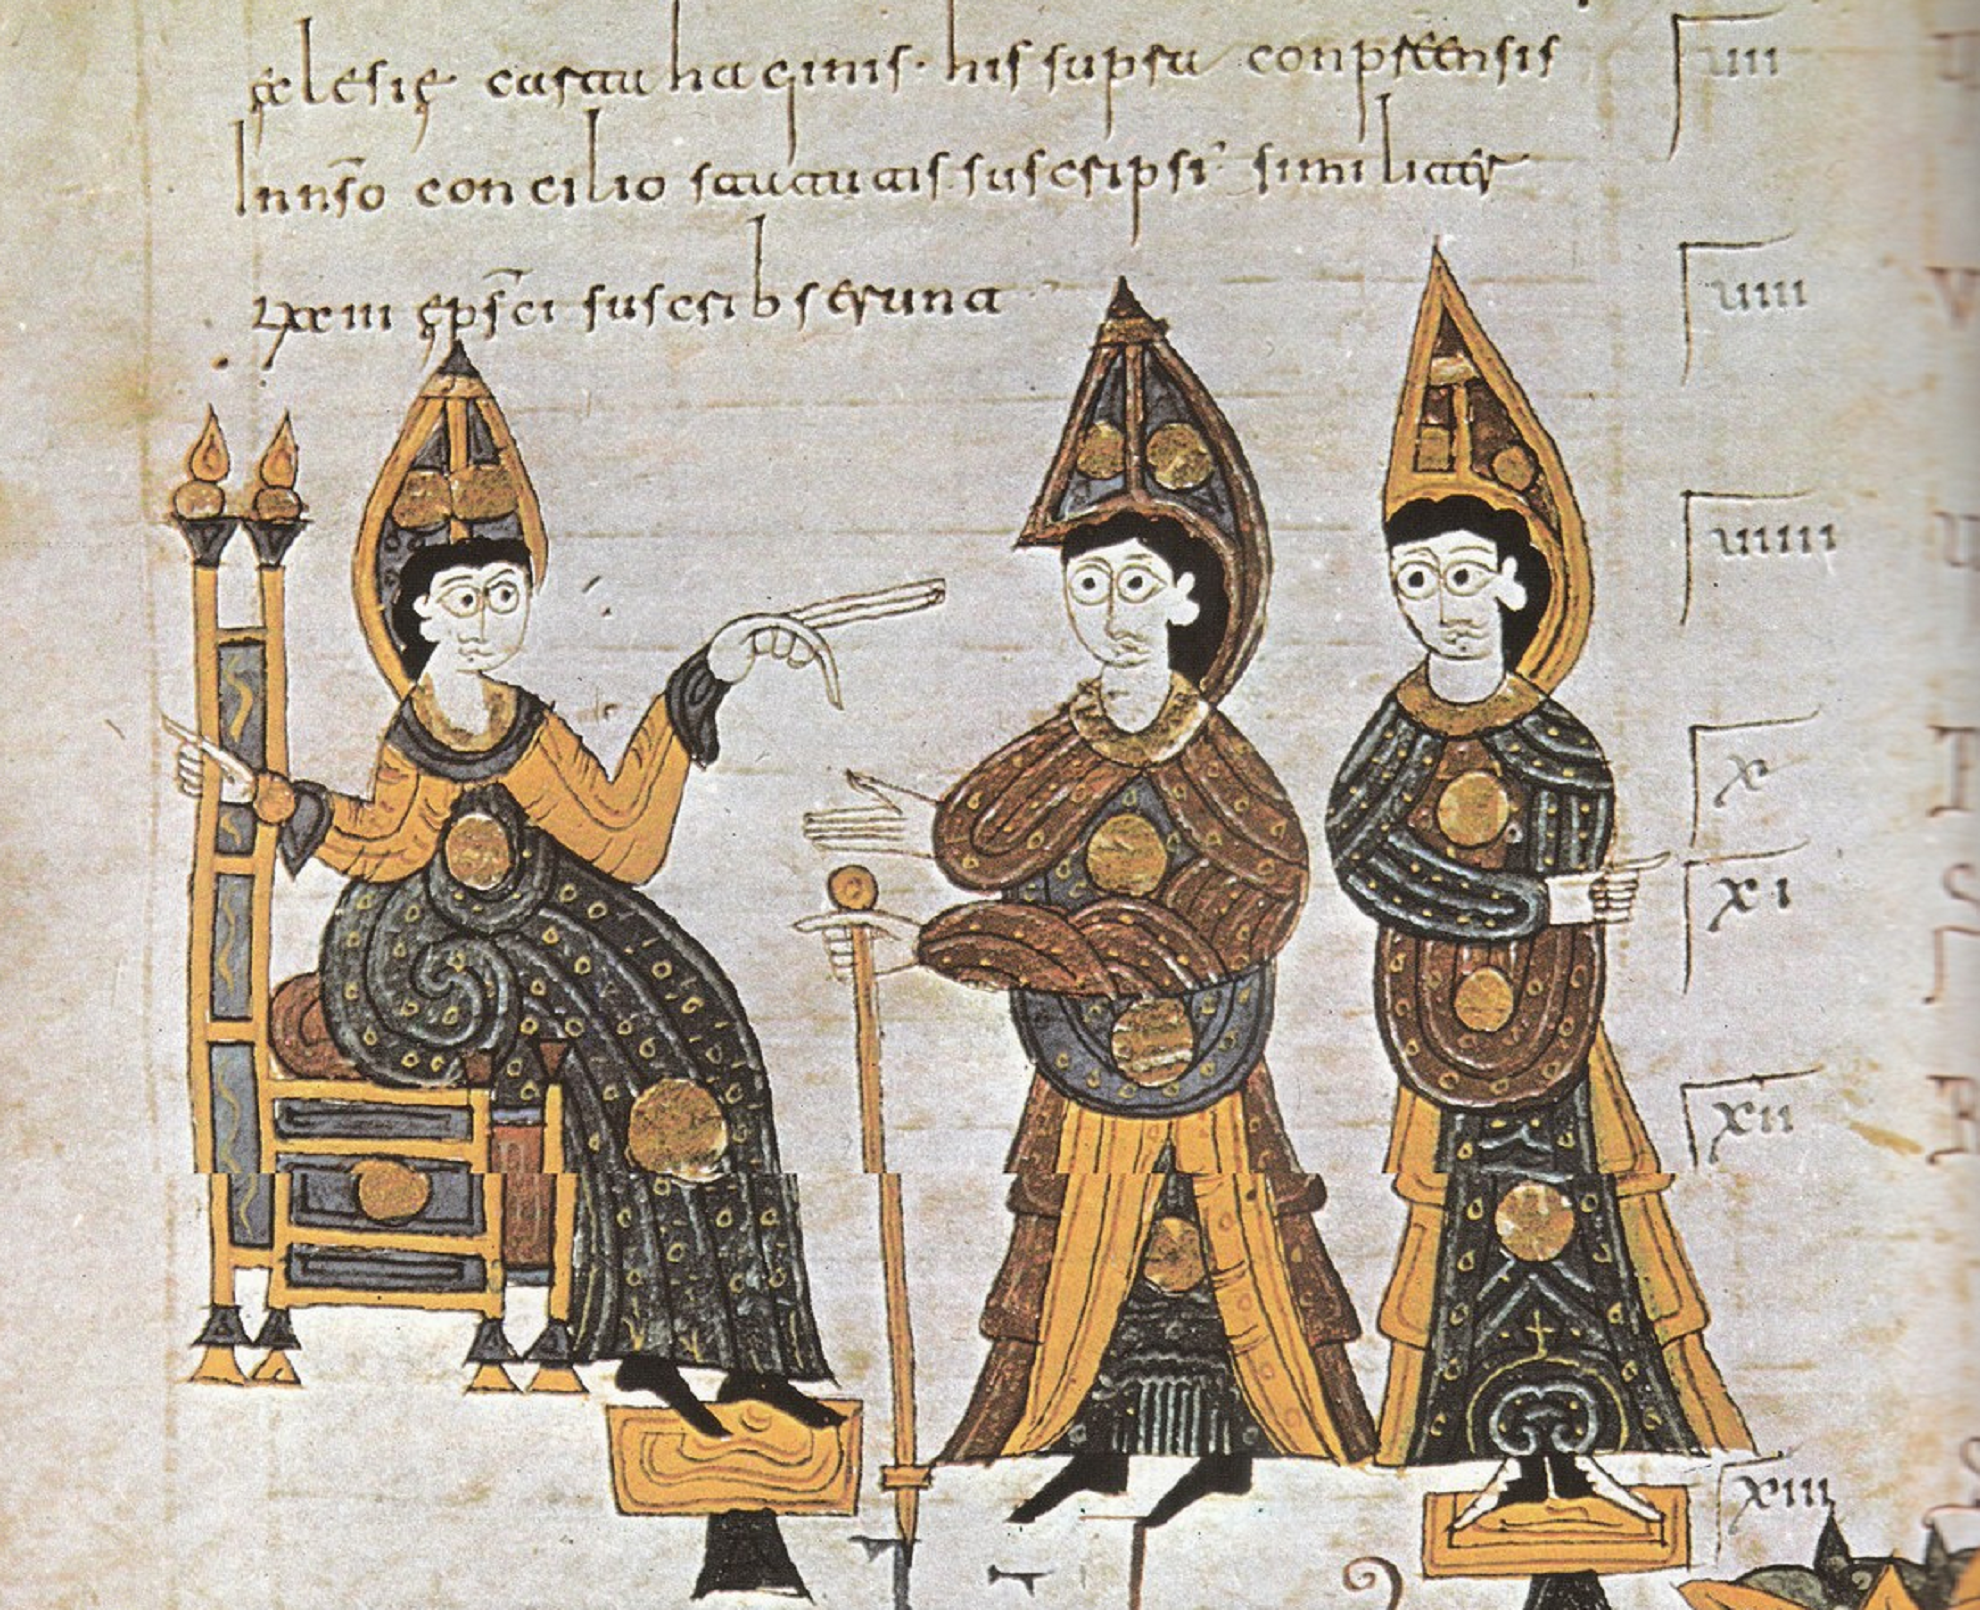 ęclesię carta haginis· his supra conprehensis
In nso concilio statutis suscripsi similiter
lxxiii epsci suscribserunt
uii
uiii
uiiii
x
xi
xii
xiii